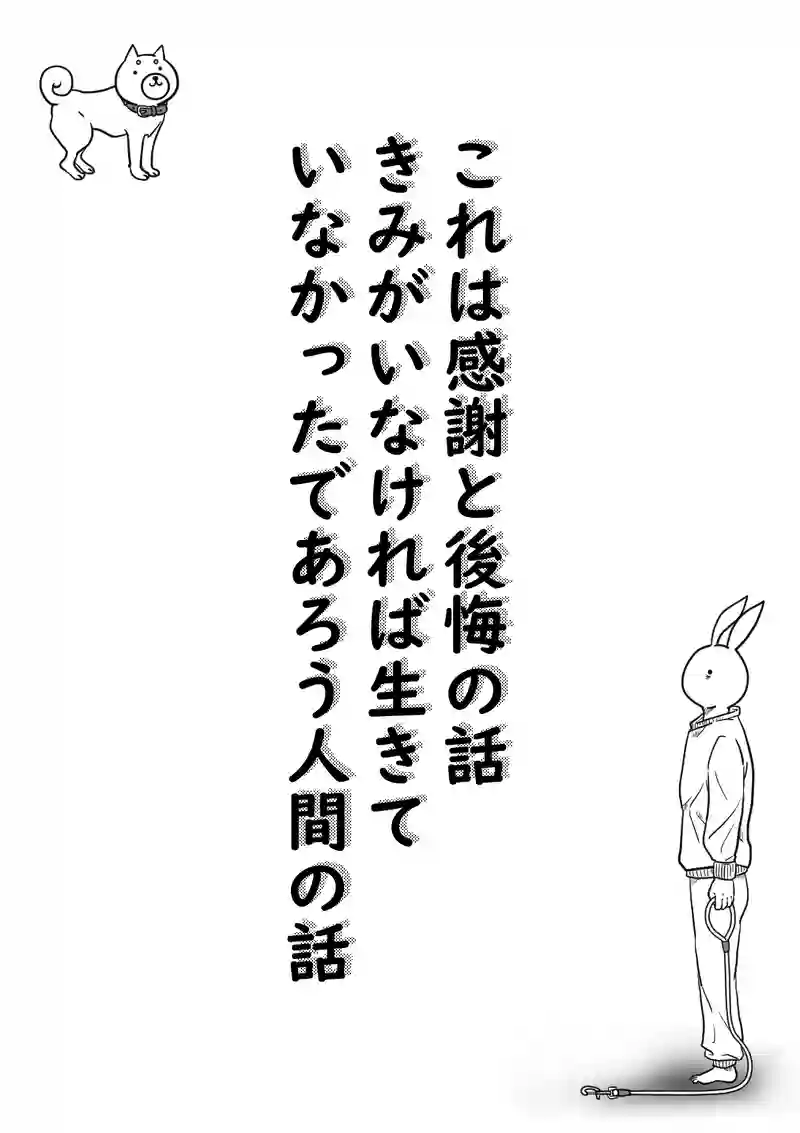 これは感謝と後悔の話
きみがいなければ生きて
いなかったであろう人間の話